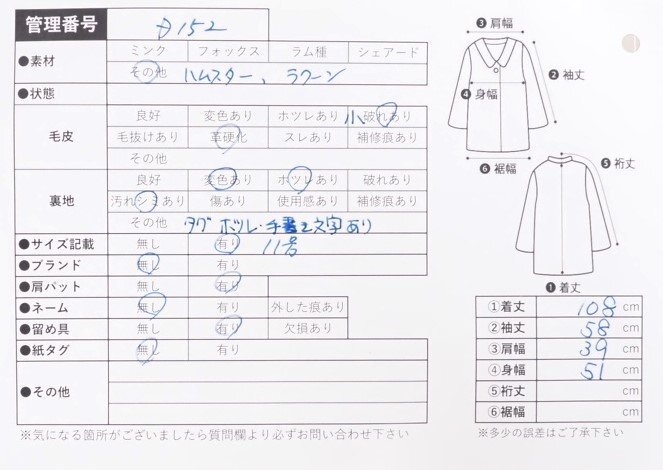 管理番号 D152
●素材 ミンク フォックス ラム種 シェアード
その他 ハムスター、ラクーン
●状態
毛皮 良好 変色あり ホツレあり 小 破れあり
毛抜けあり 革硬化 スレあり 補修痕あり
その他
裏地 良好 変色あり ホツレあり 破れあり
汚れシミあり 傷あり 使用感あり 補修痕あり
その他 タグホツレ・手書き文字あり
●サイズ記載 無し 有り 11号
●ブランド 無し 有り
●肩パット 無し 有り
●ネーム 無し 有り 外した痕あり
●留め具 無し 有り 欠損あり
●紙タグ 無し 有り
●その他
※気になる箇所がございましたら質問欄より必ずお問い合わせ下さい
❸肩幅
❷袖丈
❹身幅
❻裾幅
❺裄丈
❶着丈
①着丈 108 cm
②袖丈 58 cm
③肩幅 39 cm
④身幅 51 cm
⑤裄丈 cm
⑥裾幅 cm
※多少の誤差はご了承下さい